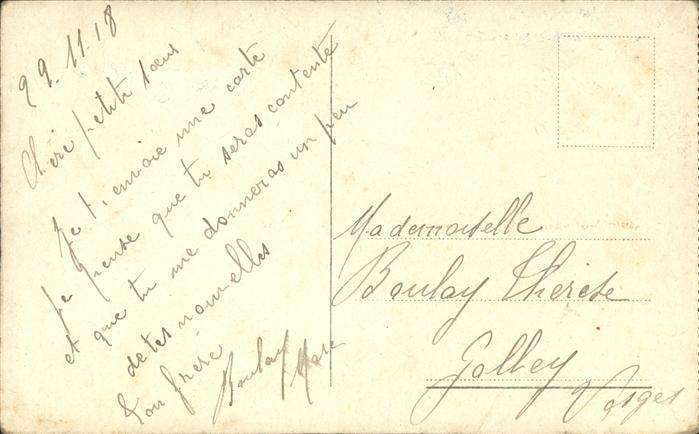 29.11.18
Chère petite sœur
Je t'envoie une carte
Je pense que tu seras contente
et que tu me donneras un peu
de tes nouvelles
Ton frère
Boulay Marc
Mademoiselle
Boulay Thérèse
Golbey
Vosges